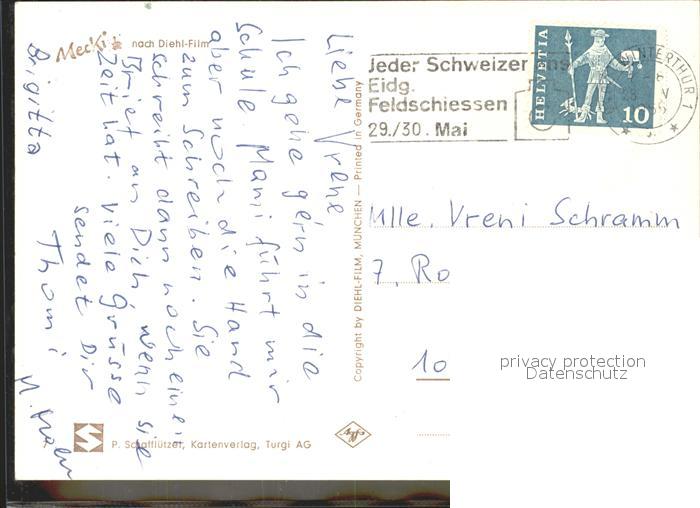 Mecki nach Diehl-Film
Liebe Vrene
Ich gehe gern in die
Schule. Mami führt mir
aber noch die Hand
zum Schreiben. Sie
schreibt dann noch einen
Brief an Dich wenn sie
Zeit hat. Viele Grüsse
sendet Dir
Thomi
Brigitta
Copyright by DIEHL-FILM, MÜNCHEN — Printed in Germany
P. Schafflützel, Kartenverlag, Turgi AG
Agfa
Jeder Schweizer ans
Eidg.
Feldschiessen
29./30. Mai
HELVETIA
10
WINTERTHUR 1
Mlle. Vreni Schramm
7, Ro
10
privacy protection
Datenschutz